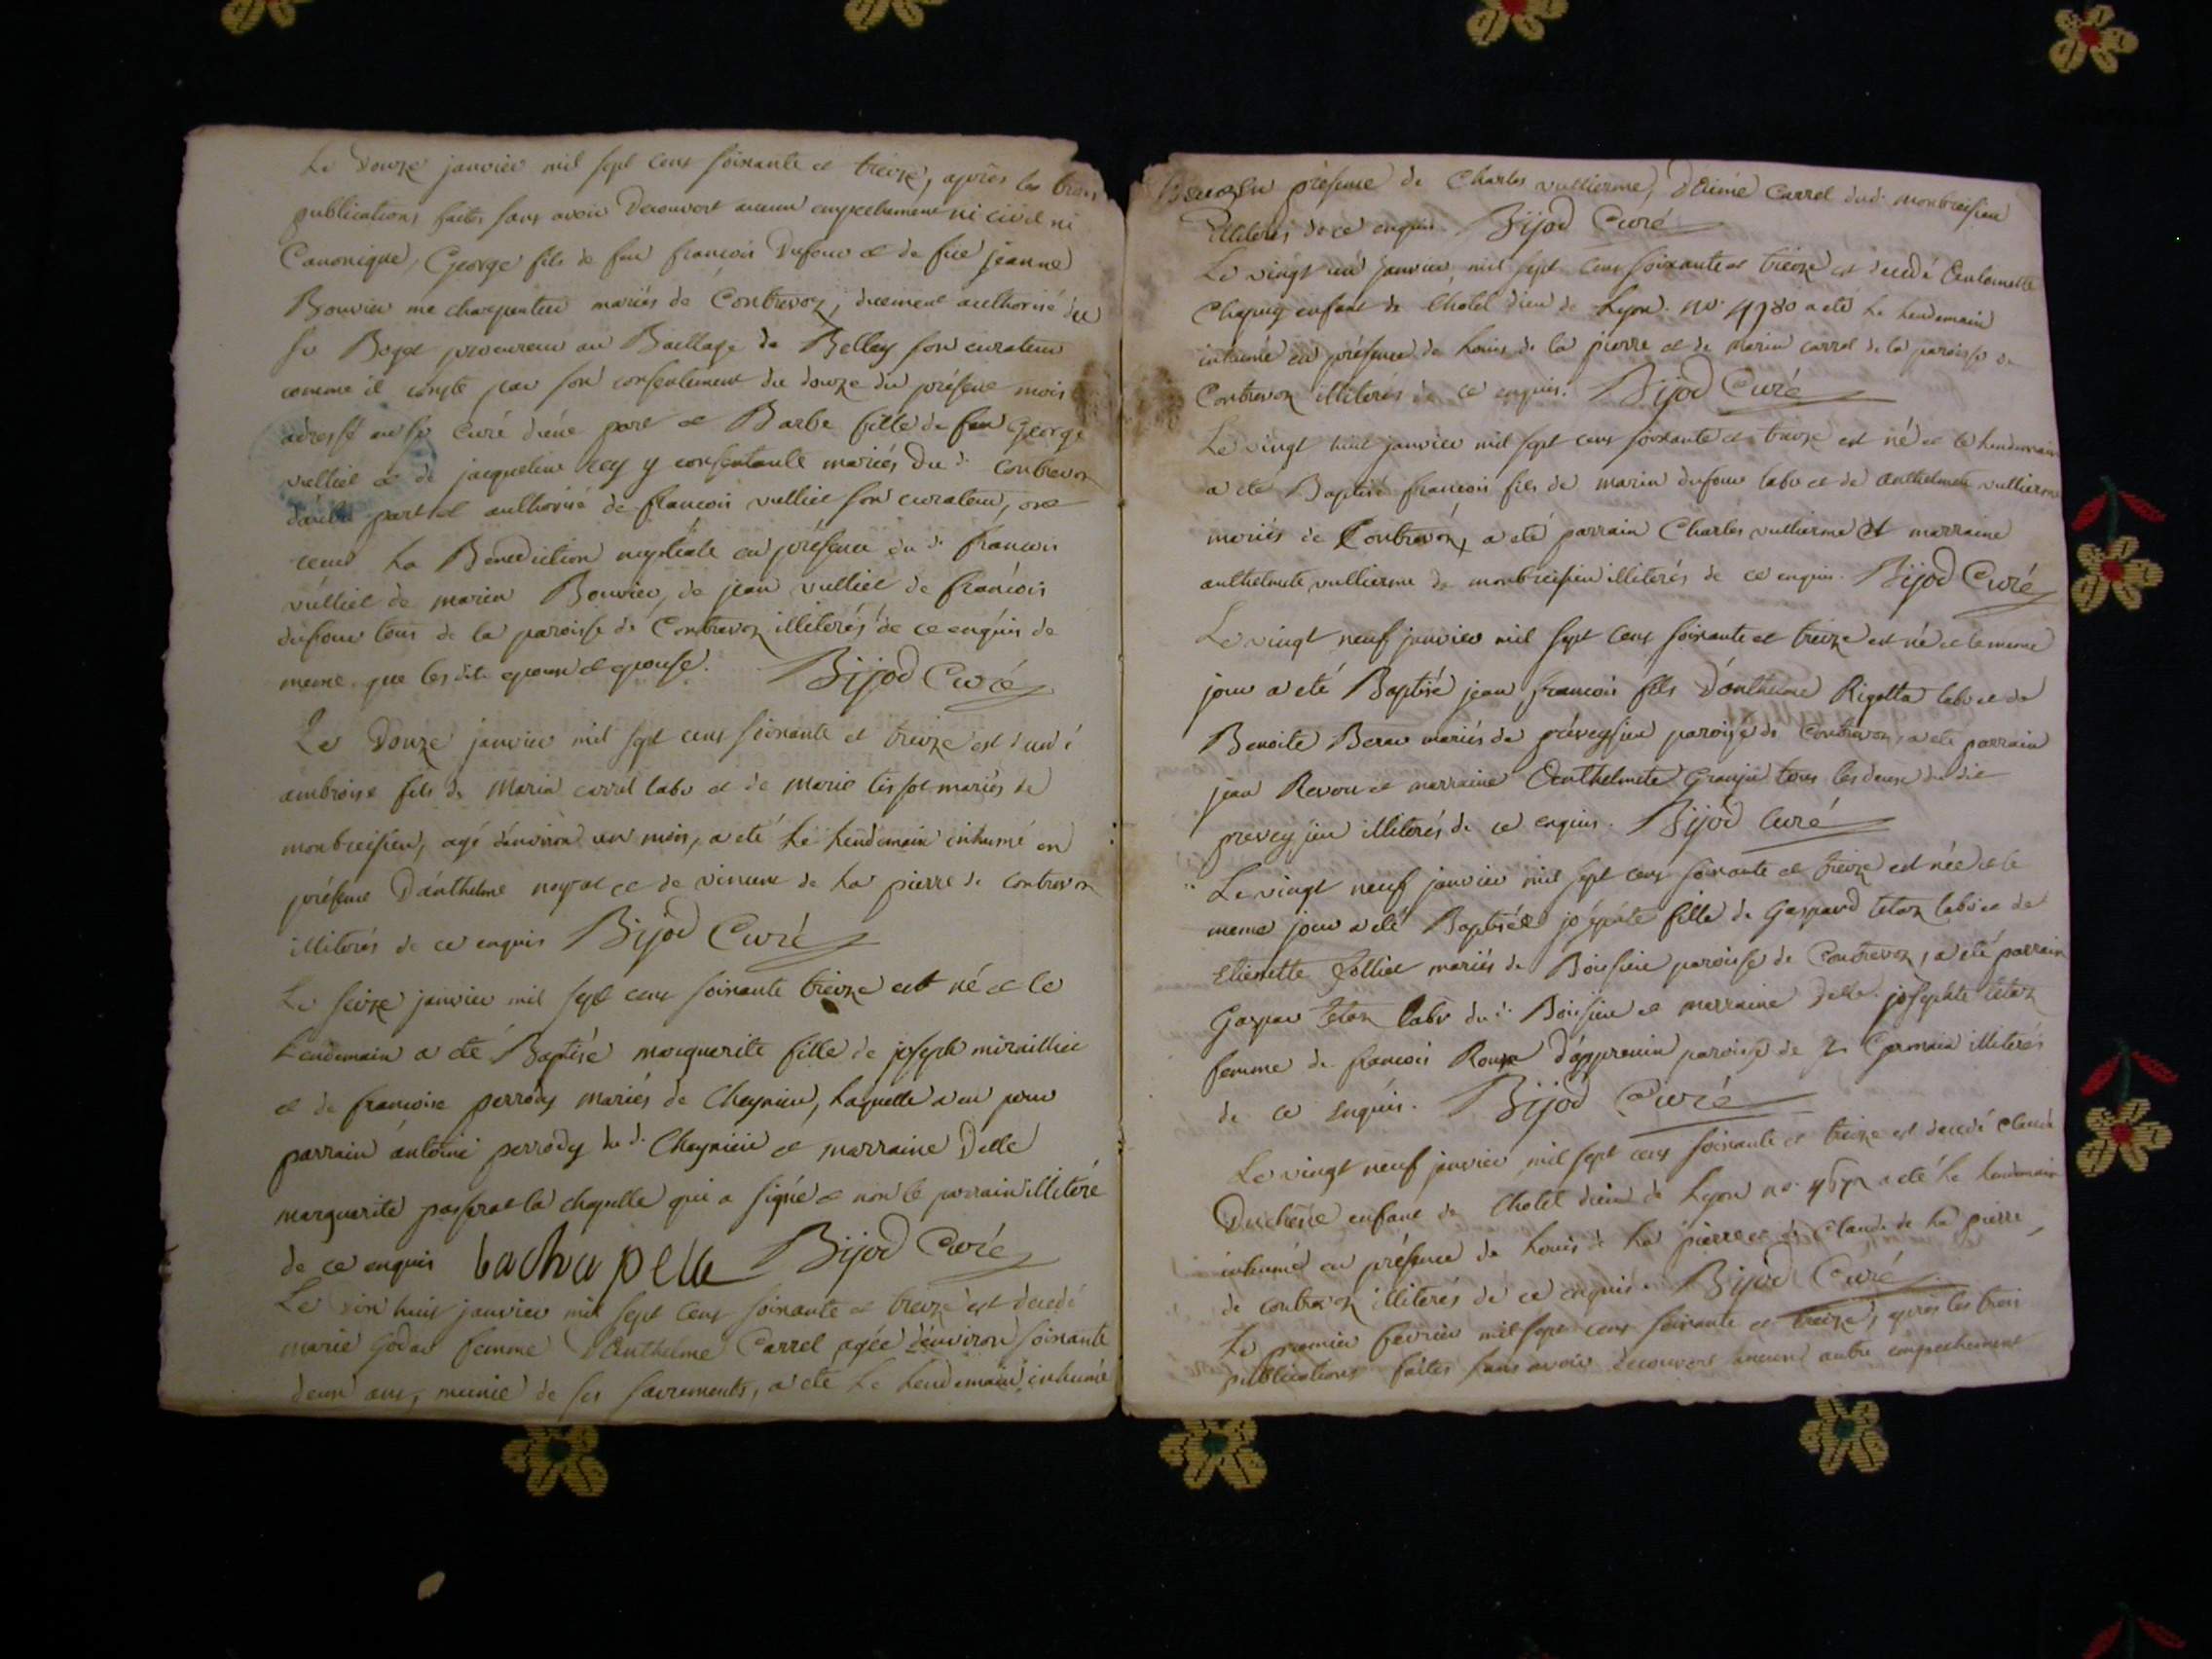 Le Douze janvier mil sept cens soixante et treize, après les trois
publications faites sans avoir Decouvert aucun empechement ni civil ni
Canonique, George fils de feu françois Dufour et de füe jeanne
Bouvier me charpentier mariés de Contrevoz, duement authorisé du
sr Boget procureur au Baillage de Belley son curateur
comme il conste par son consentement du douze du présent mois
adressé au sr Curé d'une part et Barbe fille de feu George
vulliet et de jacqueline Rey y consentante mariés du dt Contrevoz
d'autre part et authorisé de françois vulliet son curateur, ont
receus La Benediction nuptiale en présence du dt françois
vulliet de marin Bouvier, de jean vulliet de françois
dufour tous de la paroisse de Contrevoz illiterés de ce enquis de
meme que les dits epoux et epouse. Bijod Curé
Le Douze janvier mil sept cens soixante et treize est decedé
ambroise fils de Marin carrel labr et de marie tissot mariés de
montbreisieu, agé d'environ un mois, a eté Le Lendemain inhumé en
présence D'anthelme neyret et de vincent de La pierre de contrevoz
illiterés de ce enquis Bijod Curé
Le seize janvier mil sept cens soixante treize est né et le
Lendemain a eté Baptisé marguerite fille de joseph miraillier
et de françoise perrody mariés de Cheynieu, Laquelle a eu pour
parrain antoine perrody du dt Cheynieu et marraine Delle
marguerite passerat la chapelle qui a signé et non le parrain illiteré
de ce enquis lachapelle Bijod Curé
Le dix huit janvier mil sept cens soixante et treize est decedé
marie Godar femme D'Anthelme Carrel agée d'environ soixante
deux ans, munie de ses sacrements, a eté Le Lendemain inhumé
en présence de Charles vullierme, D'aimé Carrel dudt montbreisieu
illiterés de ce enquis Bijod Curé
Le vingt un janvier mil sept cens soixante et treize est decedé
Chapuy enfant de L'hotel dieu de Lyon. no. 4980 a eté Le Lendemain
inhumé en présence de Louis de la pierre et de marin carrel de la paroisse de
Contrevoz illiterés de ce enquis. Bijod Curé
Le vingt huit janvier mil sept cens soixante et treize est né et le Lendemain
a eté Baptisé françois fils de marin dufour labr et de anthelmete vullierme
mariés de Contrevoz, a eté parrain Charles vullierme et marraine
anthelmete vullierme de montbreisieu illiterés de ce enquis. Bijod Curé
Le vingt neuf janvier mil sept cens soixante et treize est né et le meme
jour a eté Baptisé jean françois fils D'anthelme Rigotta labr et de
Benoite Berar mariés de préveysieu paroisse de Contrevoz, a eté parrain
jean Revou et marraine Anthelmete Granju tous les deux du dit
preveysieu illiterés de ce enquis. Bijod Curé
Le vingt neuf janvier mil sept cens soixante et treize est née et le
meme jour a eté Baptisée josephte fille de Gaspard tetoz labr et de
Etienette Jolliet mariés de Boissieu paroisse de Contrevoz, a eté parrain
Gaspar tetoz labr du dt Boissieu et marraine delle. josephte tetoz
femme de françois Roux d'appremin paroisse de St Germain illiterés
de ce enquis. Bijod Curé
Le vingt neuf janvier mil sept cens soixante et treize est decedé Claude
Duchesne enfant de L'hotel dieu de Lyon no. a eté Le Lendemain
inhumé en présence de Louis de La pierre et de Claude de La pierre
de contrevoz illiterés de ce enquis. Bijod Curé
Le premier fevrier mil sept cens soixante et treize, après les trois
publications faites sans avoir decouvert aucun autre empechement